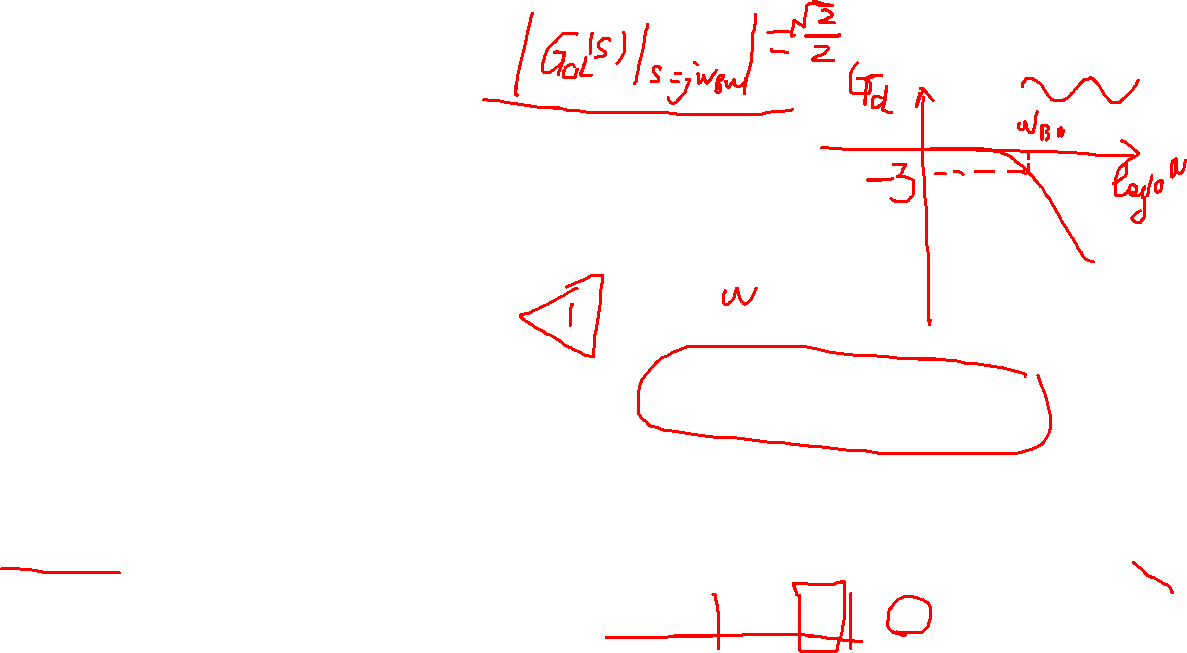 |G_{cL}(s)|_{s=jω_{BW}}| = √2/2
G_{cl}
ω_{B}
-3
log_{10} ω
1
ω